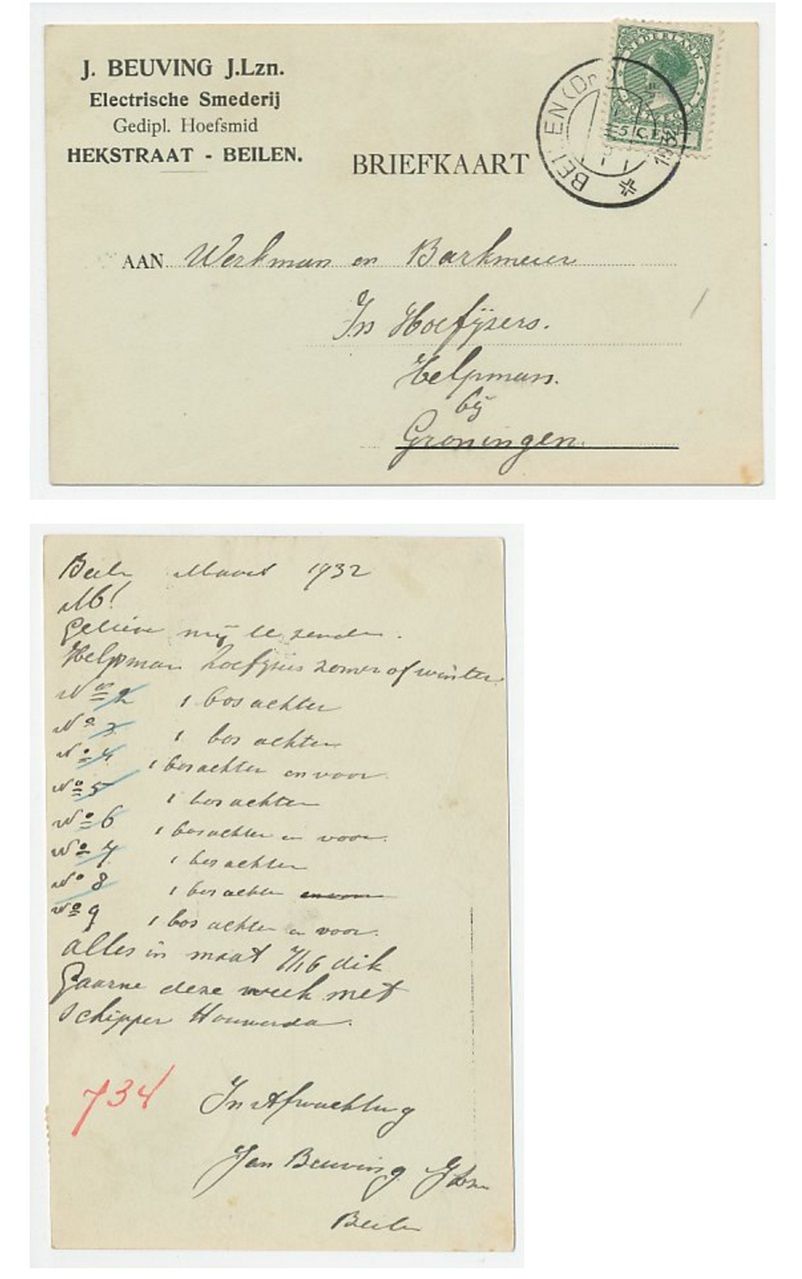 J. BEUVING J.Lzn.
Electrische Smederij
Gedipl. Hoefsmid
HEKSTRAAT - BEILEN.
BRIEFKAART
NEDERLAND
5 C.
BEILEN (Dr.)
1932
AAN Werkman en Barkmeier
In Hoefijsers.
Helpman.
bij
Groningen.
Beilen Maart 1932
M!
Gelieve mij te zenden.
Helpman hoefijsers zomer of winter
No 2 1 bos achter
No 3 1 bos achter
No 4 1 bos achter en voor
No 5 1 bos achter
No 6 1 bos achter en voor.
No 7 1 bos achter
No 8 1 bos achter en voor
No 9 1 bos achter en voor.
alles in maat 7/16 dik
Gaarne deze week met
schipper Houwerda.
734
In Afwachting
Jan Beuving JLzn
Beilen